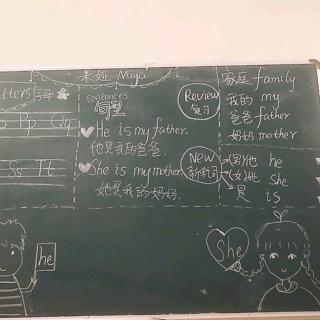 果妍 Miya
tters 字母
Pp Qq
Ss Tt
sentences
句型
He is my father.
他是我的爸爸.
She is my mother
她是我的妈妈.
Review
复习
New
新单词
家庭 family
我的 my
爸爸 father
妈妈 mother
(男)他 he
(女)她 She
是 is
he
She